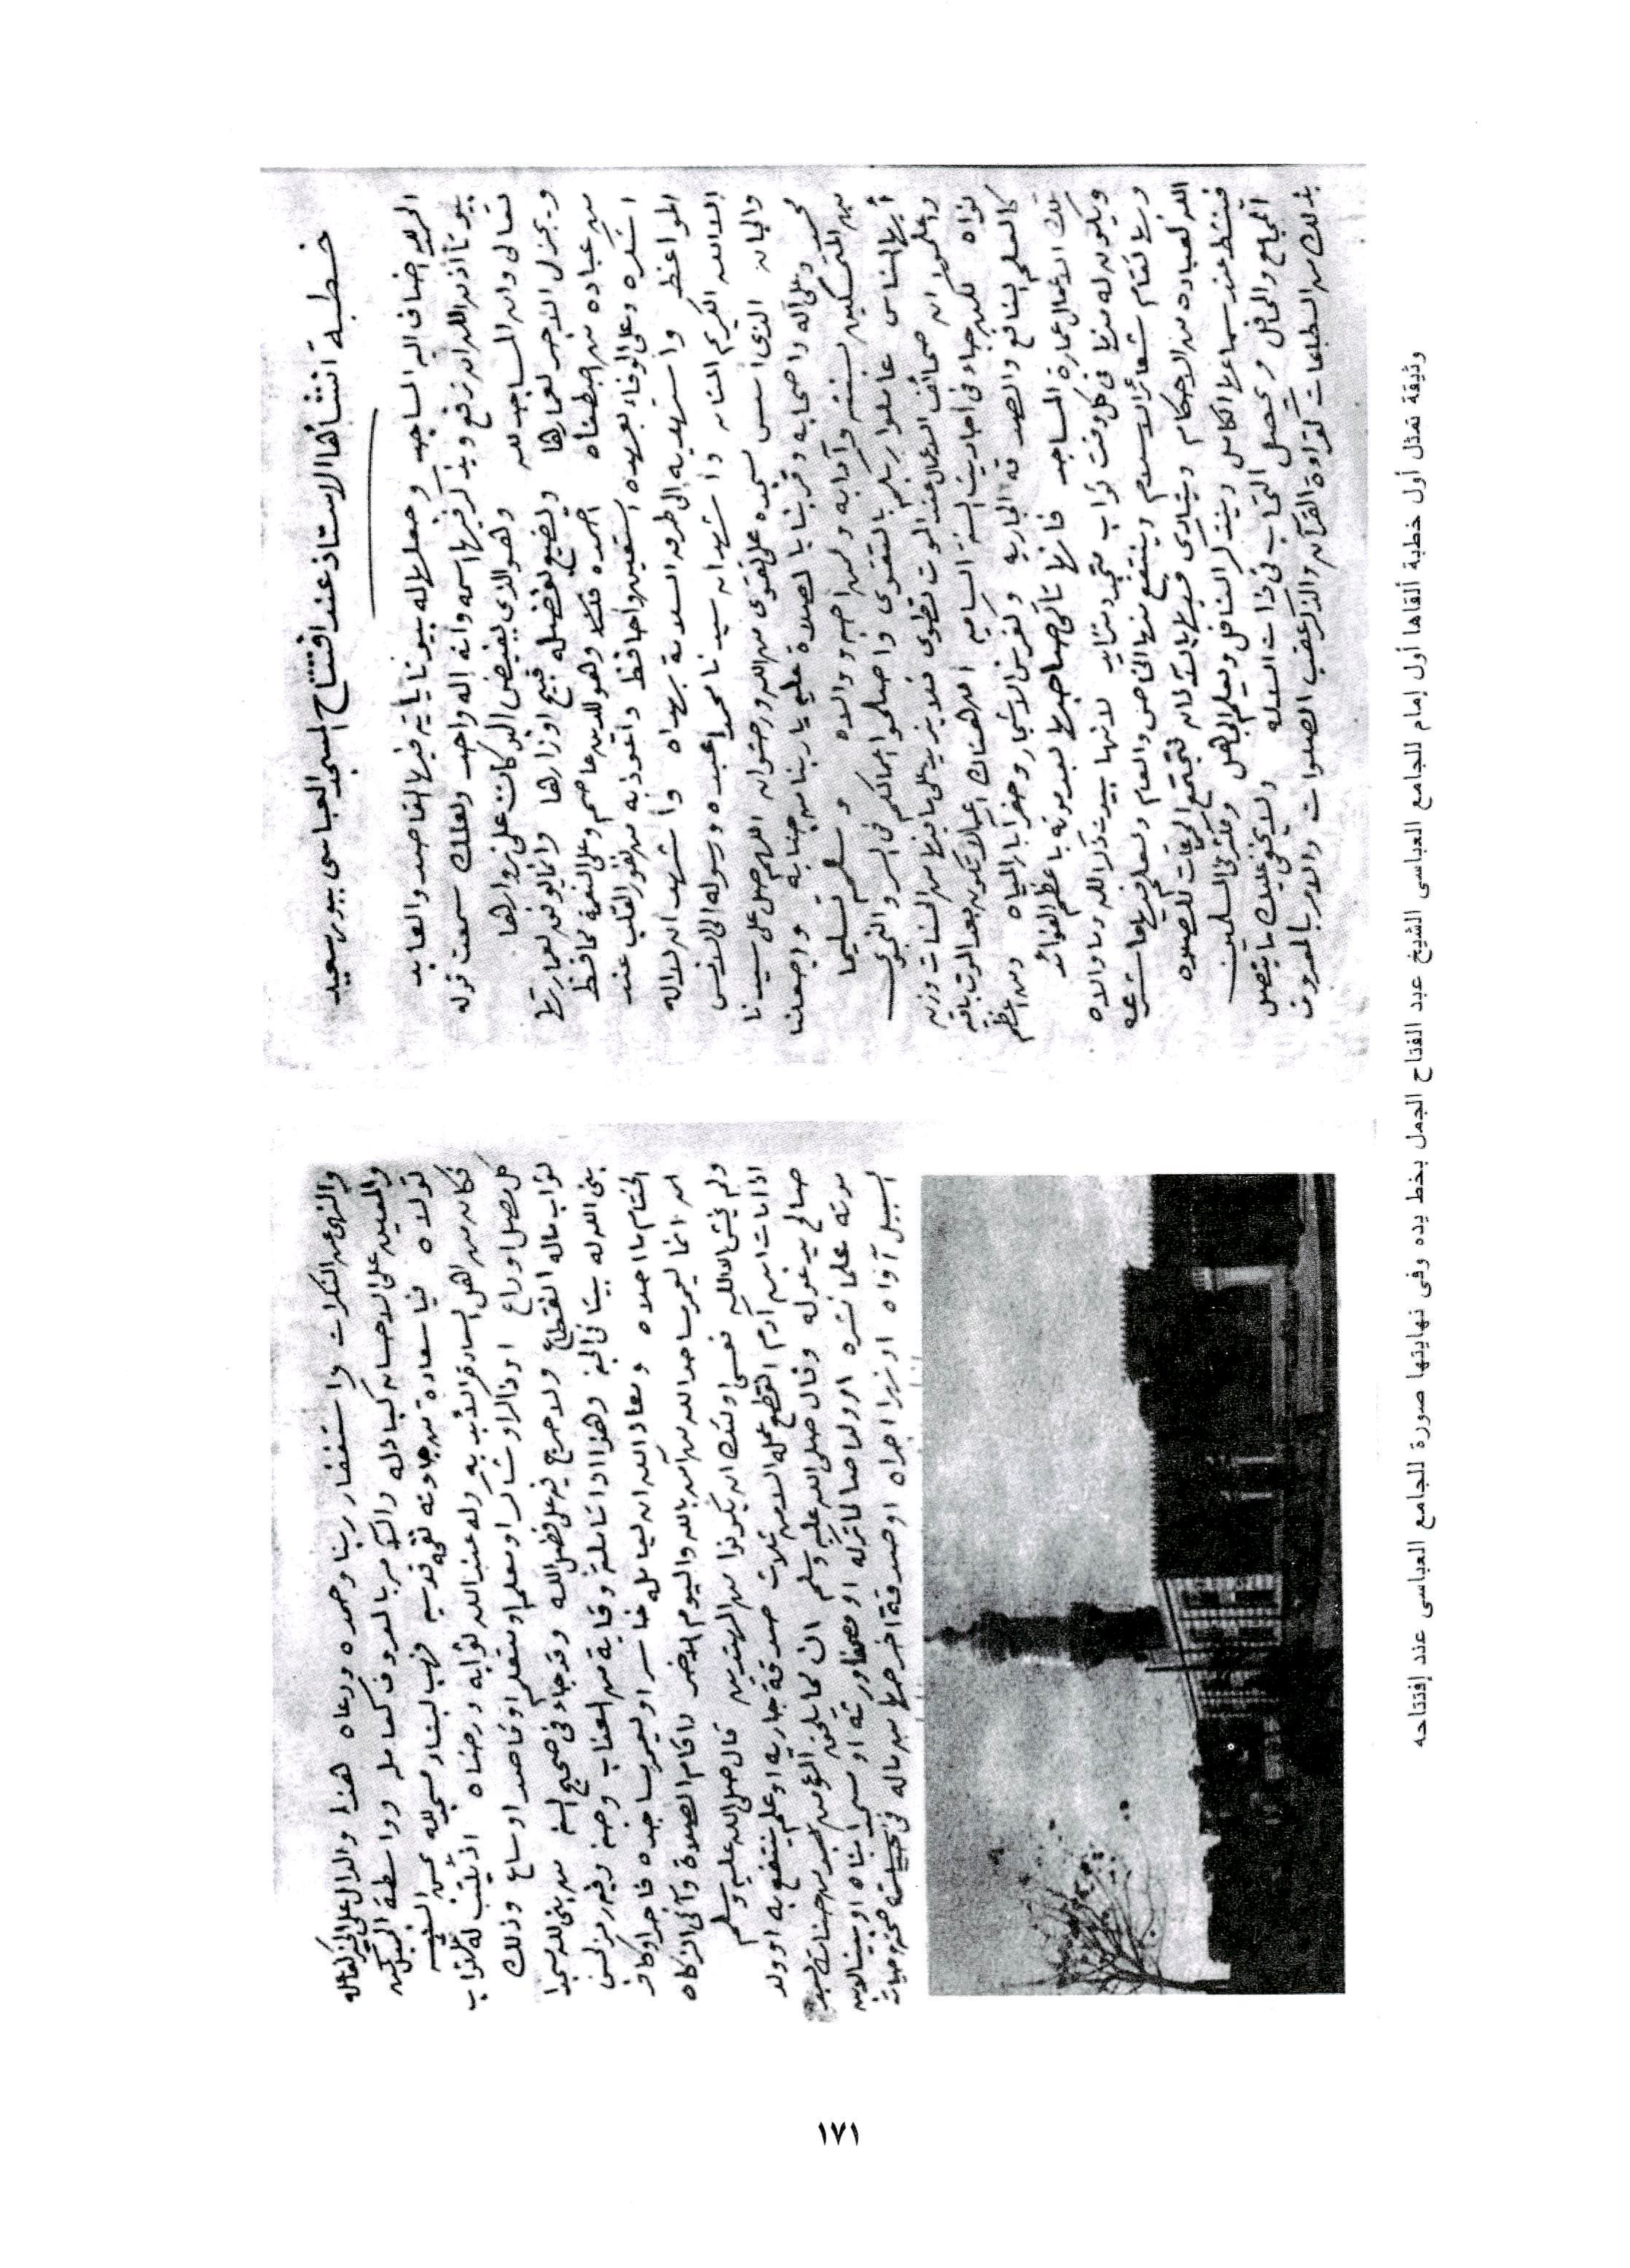 خطبة أنشأها الاستاذ عند افتتاح المسجد العباسى ببورسعيد
الحمد لله أضاف اليه المساجد وجعلها له بيوتا يأتيه فيها القاصد والعابد
بيوتا أذن الله ان ترفع ويذكر فيها اسمه وأنه إله واحد ولعلك سمعت قوله
تعالى وان المساجد لله وهو الذى يفيض البركات على زوارها
ويجزل الأجر لعمارها ويضيع بفضله قبيح أوزارها وانما يوفق لعمارتها
من عباده من اصطفاه احمده فهو للدين عاصم وعلى النعمة محافظ
اشكره وعلى الوفاء بعهده استعين واحافظ وأعوذ به من نفور القلب عند
المواعظ واستهديه الى طرق السلامة بهداه وأشهد ان لا اله
الا الله الكريم المنان وأشهد ان سيدنا محمدا عبده ورسوله الى الانس
والجان الذى أسس مسجده على تقوى من الله ورضوان اللهم صل على سيدنا
محمد وعلى آله واصحابه وقربنا بالصلاة عليه يا ربنا من جنابه واجعلنا
من المتمسكين بسنته وآدابه ومن احبه ووالاه وسلم تسليما
أيها الناس عاملوا ربكم بالتقوى واصلحوا اعمالكم فى السر والنجوى
واعلموا ان صحائف الاعمال عند الموت تطوى فلا يزيد على ما فيها من الحسنات وزنه
نواه لكن جاء فى احاديث السنة الساميه ان هناك اعمالا تكون بعد الموت باقيه
كالعلم النافع والصدقه الجاريه وغرس الاشجار وحفر آبار المياه ومن اعظم
تلك الاعمال عمارة المساجد فإنها تأتى صاحبها بعد موته باعظم الفوائد
ويكون له منها فى كل وقت ثواب متجدد متزايد لأنها بيوت ذكر الله وما والاه
وبها تقام شعائر الاسلام وينتفع منها الخاص والعام وتعلم فيها ما شرعه
الله لعباده من الاحكام وينادى فيها بالآذان فتجتمع الجماعات للصلاه
فينشط عند سماعها الكامل ويتذكر الغافل ويعلم الجاهل وتكثر فى المسلمين
المجامع والمحافل ويحصل التحاب فى ذات الله ولا يخفى عليك ما يتصل
بذلك من الطاعات كتلاوة القرآن والذكر عقب الصلوات والامر بالمعروف
والنهى عن المنكرات واستغفار ربنا وحمده ودعاه هذا والدال على الخير كفاعله
والمعين على الاحسان كباذله والآمر بالمعروف كعامله وواسطة الخير كمن
تولاه فيا سعادة من جاد ته نفسه فوهب لبناء مسجد لله
فكان من اهل السعادة الأبديه وله عند الله ثوابه ورضاه اذ يكتب له ثواب
كل مصل وراع او ذاكر او شاكر او معلم او متعلم او قاصد او ساع وذلك
ثواب ماله انقطاع ولا حرج فيه على فضل الله وقد جاء فى صحيح السنه من بنى لله مسجدا
بنى الله له بيتا فى الجنه وهو اذا تأملته وقاية من العذاب وجنه وفيه رمز لحسن
الختام ما احلاه ومعاذ الله ان يعامله خاسر او يعمر مساجده فاجر او كافر
انه انما يعمر مساجد الله من آمن بالله واليوم الآخر وأقام الصلاة وآتى الزكاه
ولم يخش الا الله فعسى اولئك ان يكونوا من المهتدين قال صلى الله عليه وسلم
اذا مات ابن آدم انقطع عمله الا من ثلاث صدقة جاريه او علم ينتفع به او ولد
صالح يدعو له وقال صلى الله عليه وسلم ان مما يلحق المؤمن من حسناته بعد
موته علما نشره او ولدا صالحا تركه او مصحفا ورثه او مسجدا بناه او بيتا لابن
السبيل آواه او نهرا اجراه او صدقة اخرجها من ماله فى صحته وحياته
وثيقة تمثل أول خطبة ألقاها أول إمام للجامع العباسى الشيخ عبد الفتاح الجمل بخط يده وفى نهايتها صورة للجامع العباسى عند إفتتاحه
١٧١